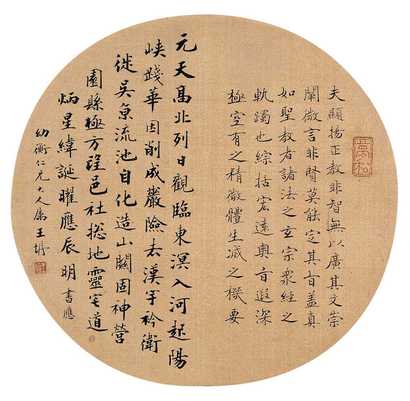 夫顯揚正教非智無以廣其文崇
闡微言非賢莫能定其旨蓋真
如聖教者諸法之玄宗衆經之
軌躅也綜括宏遠奧旨遐深
極空有之精微體生滅之機要
元天高北列日觀臨東溟入河起陽
峽踐華因削成巖險去漢宇衿衛
徙吳京流池自化造山關固神營
園縣極方望邑社揔地靈宅道
炳星緯誕曜應辰明 書應
幼衡仁兄大人屬王